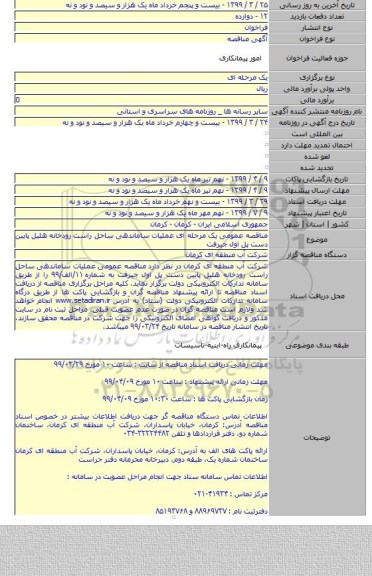 تاریخ آخرین به روز رسانی ۲۵ / ۳ / ۱۳۹۹ - بیست و پنجم خرداد ماه یک هزار و سیصد و نود و نه
تعداد دفعات بازدید ۱۲ - دوازده
نوع انتشار فراخوان
نوع فراخوان آگهی مناقصه
حوزه فعالیت فراخوان امور پیمانکاری
نوع برگزاری یک مرحله ای
واحد پولی برآورد مالی ریال
برآورد مالی 0
نام روزنامه منتشر کننده آگهی سایر رسانه ها _ روزنامه های سراسری و استانی
تاریخ درج آگهی در روزنامه ۲۴ / ۳ / ۱۳۹۹ - بیست و چهارم خرداد ماه یک هزار و سیصد و نود و نه
بین المللی است
احتمال تمدید مهلت دارد
لغو شده
تجدید شده
تاریخ بازگشایی پاکات ۹ / ۴ / ۱۳۹۹ - نهم تیر ماه یک هزار و سیصد و نود و نه
مهلت ارسال پیشنهاد ۹ / ۴ / ۱۳۹۹ - نهم تیر ماه یک هزار و سیصد و نود و نه
مهلت دریافت اسناد ۲۹ / ۳ / ۱۳۹۹ - بیست و نهم خرداد ماه یک هزار و سیصد و نود و نه
تاریخ اعتبار پیشنهاد ۹ / ۷ / ۱۳۹۹ - نهم مهر ماه یک هزار و سیصد و نود و نه
کشور | استان | شهر جمهوری اسلامی ایران - کرمان - کرمان
موضوع مناقصه عمومی یک مرحله ای عملیات ساماندهی ساحل راست رودخانه هلیل پایین
دست پل اول جیرفت
دستگاه مناقصه گزار شرکت آب منطقه ای کرمان
محل دریافت اسناد شرکت آب منطقه ای کرمان در نظر دارد مناقصه عمومی عملیات ساماندهی ساحل
راست رودخانه هلیل پایین دست پل اول جیرفت به شماره ۱۱/الف/۹۹ را از طریق
سامانه تدارکات الکترونیکی دولت برگزار نماید. کلیه مراحل برگزاری مناقصه از دریافت
اسناد مناقصه تا ارائه پیشنهاد مناقصه گران و بازگشایی پاکت ها از طریق درگاه
سامانه تدارکات الکترونیکی دولت (ستاد) به آدرس www.setadiran.ir انجام خواهد
شد ولازم است مناقصه گران در صورت عدم عضویت قبلی، مراحل ثبت نام در سایت
مذکور و دریافت گواهی امضای الکترونیکی را جهت شرکت در مناقصه محقق سازند.
تاریخ انتشار مناقصه در سامانه تاریخ ۹۹/۰۳/۲۴ میباشد.
طبقه بندی موضوعی پیمانکاری راه-ابنیه-تاسیسات
توضیحات مهلت زمانی دریافت اسناد مناقصه از سایت : ساعت ۱۰ مورخ ۹۹/۰۳/۲۹
مهلت زمانی ارائه پیشنهاد : ساعت ۱۰ مورخ ۹۹/۰۴/۰۹
زمان بازگشایی پاکت ها : ساعت ۱۰:۳۰ مورخ ۹۹/۰۴/۰۹
اطلاعات تماس دستگاه مناقصه گر جهت دریافت اطلاعات بیشتر در خصوص اسناد
مناقصه آدرس: کرمان، خیابان پاسداران، شرکت آب منطقه ای کرمان، ساختمان
شماره دو، دفتر قراردادها و تلفن ۳۲۲۲۴۴۸۲-۰۳۴
ارائه پاکت های الف به آدرس: کرمان، خیابان پاسداران، شرکت آب منطقه ای کرمان
ساختمان شماره یک، طبقه دوم، دبیرخانه محرمانه دفتر حراست
اطلاعات تماس سامانه ستاد جهت انجام مراحل عضویت در سامانه :
مرکز تماس : ۴۱۹۳۴-۰۲۱
دفترثبت نام : ۸۸۹۶۹۷۳۷ و ۸۵۱۹۳۷۶۸